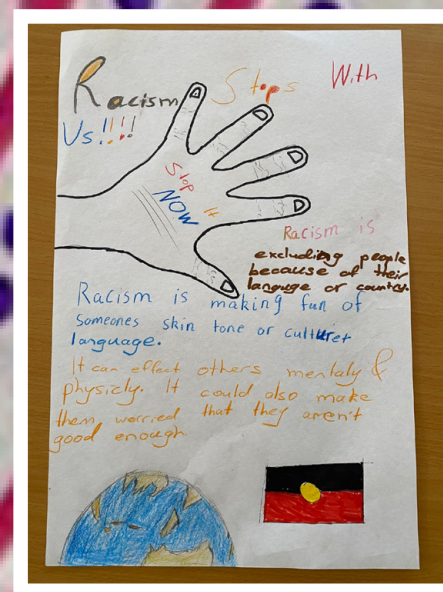 Racism Stops With
Us!!!!
Stop
it
NOW
Racism is
excluding people
because of their
language or country.
Racism is making fun of
someones skin tone or culturer
language.
It can effect others mentaly &
physicly. It could also make
them worried that they aren't
good enough